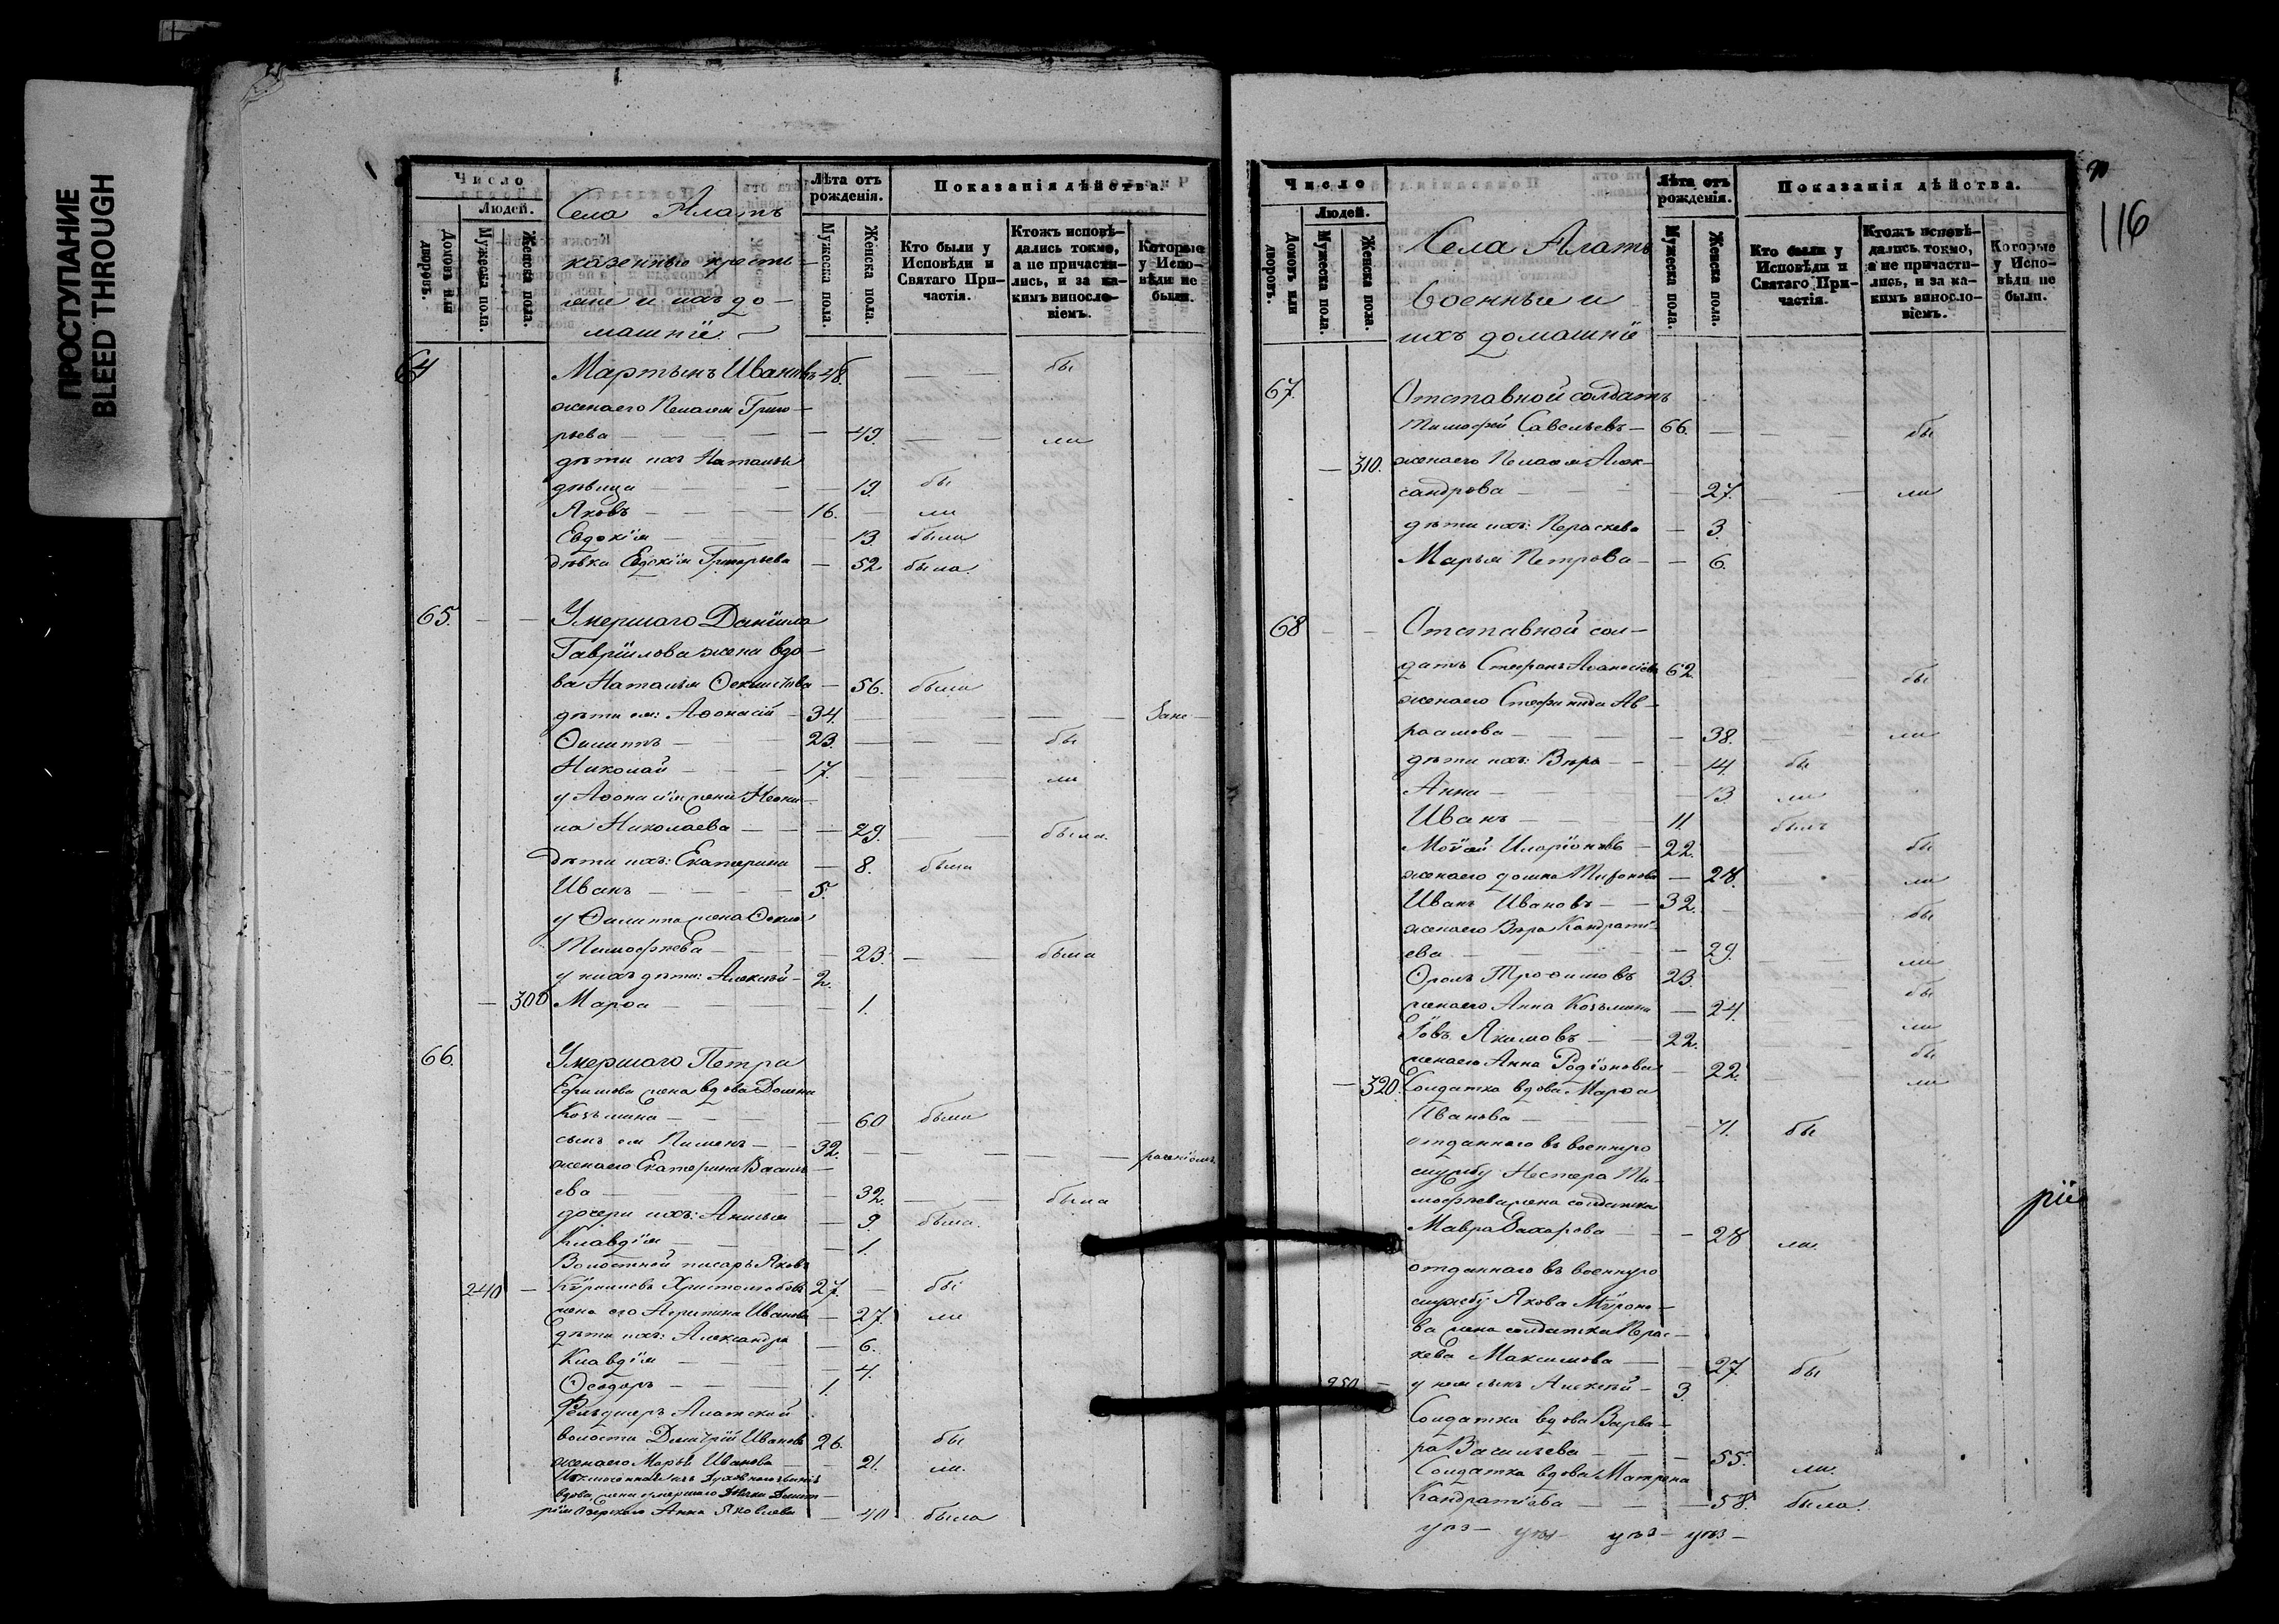 ПРОСТУПАНИЕ
BLEED THROUGH
Число
Людей.
Домовъ или дворовъ.
Мужеска пола.
Женска пола.
Села Алатъ
казенные кресть-
яне и ихъ до-
машніе.
Лѣта отъ рожденія.
Мужеска пола.
Женска пола.
Показанія дѣйства.
Кто были у Исповѣди и Святаго Причастія.
Ктожъ исповѣдались токмо, а не причастились, и за какимъ винословіемъ.
Которые у Исповѣди не были.
64 Мартынъ Ивановъ 48. — — бы
жена его Пелагея Григо-
рьева — — 49. — — ли
дѣти ихъ Наталья
дѣвица — — 19. бы
Яковъ — — 16. — ли
Евдокія — 13. были
дѣвка Евдокія Григорьева — 52 была.
65. — — Умершаго Даніила
Гавріилова жена вдо-
ва Наталья — 56. была
дѣти ея: Аѳонасій — 34. — — — Зане-
Филиппъ — — 23. — — бы
Николай — — 17. — — ли
у Аѳонасія жена
Николаева — — 29. — — была.
дѣти ихъ: Екатерина — 8. была
Иванъ — — 5.
у Филиппа жена
Тимофѣева — — 23. — — была
у нихъ дѣти: Алексѣй — 2.
— 300 Марѳа — — 1.
66. Умершаго Петра
Ефимова жена вдова Домна
Козьмина — — 60 была
сынъ ея Пименъ — 32. — — — раченіемъ.
жена его Екатерина Василь-
ева — — 32. — — была
дочери ихъ: Анисья — 9 была.
Клавдія — — 1.
Волостной писарь Яковъ
240 — Христолюбовъ 27. — бы
жена его Агрипина Иванова — 27. ли
дѣти ихъ: Александра — 6.
Клавдія — — 4.
Ѳеодоръ — — 1.
Фельдшеръ Алатской
волости Дмитрій Ивановъ 26. бы
жена его Марья Иванова — 21. ли.
вдова, жена умершаго
Анна Яковлева — 40 была
116
Число
Людей.
Домовъ или дворовъ.
Мужеска пола.
Женска пола.
Села Алатъ
Военные и
ихъ домашніе
Лѣта отъ рожденія.
Мужеска пола.
Женска пола.
Показанія дѣйства.
Кто были у Исповѣди и Святаго Причастія.
Ктожъ исповѣдались токмо, а не причастились, и за какимъ винословіемъ.
Которые у Исповѣди не были.
67. Отставной солдатъ
Тимофей Савельевъ — 66. — — бы
— 310. жена его Пелагея Алек-
сандрова — — 27. — — ли
дѣти ихъ: Параскева — 3.
Марья Петрова — — 6.
68 — — Отставной сол-
датъ Стефанъ Аѳанасіевъ 62. бы
жена его Стефанида Ав-
раамова — — 38. — ли
дѣти ихъ: Вѣра — — 14. бы
Анна — — 13. ли
Иванъ — — 11. былъ
Иларіоновъ — 22. бы
жена его Домна — 28. ли
Иванъ Ивановъ — 32. — бы
жена его Вѣра Кандраті-
ева — — 29. — ли
Фролъ Трофимовъ 23. бы
жена его Анна Козьмина — 24. ли
Іовъ Якимовъ — 22. — бы
жена его Анна Родіонова — 22. — ли
— 320. Солдатка вдова Марѳа
Иванова — — 71. бы
отданнаго въ военную
службу Нестера Ти-
мофѣева жена солдатка
Мавра Захарова — — 28 ли.
ріе
отданнаго въ военную
службу Якова Мѵроно-
ва жена солдатка Парас-
кева Максимова — — 27. бы
250 — у нея сынъ Алексѣй — 3.
Солдатка вдова Варва-
ра Васильева — — 55. ли.
Солдатка вдова Матрена
Кандратіева — — 58. была.